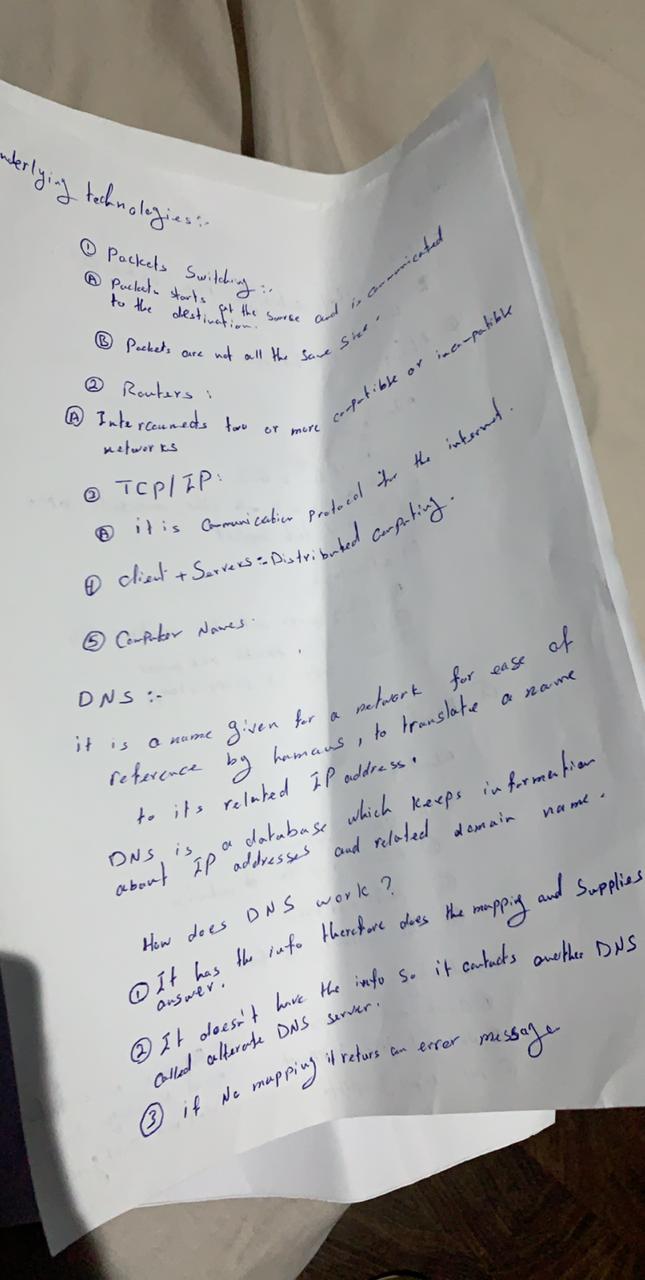 nderlying technologies:-
① Packets Switching:-
Ⓐ Packets starts at the sourse and is communicated
to the destination.
Ⓑ Packets are not all the same size.
② Routers:
Ⓐ Interconnects two or more compatible or incompatible
networks
③ TCP/IP:
Ⓐ it is Communication Protocol for the internet.
④ client + Servers:- Distributed computing.
⑤ Computer Names.
DNS :-
it is a name given for a network for ease of
reference by humans, to translate a name
to its related IP address.
DNS is a database which keeps information
about IP addresses and related domain name.
How does DNS work?
① It has the info therefore does the mapping and Supplies
answer.
② It doesn't have the info so it contacts another DNS
called alterate DNS server.
③ if No mapping it returs an error message